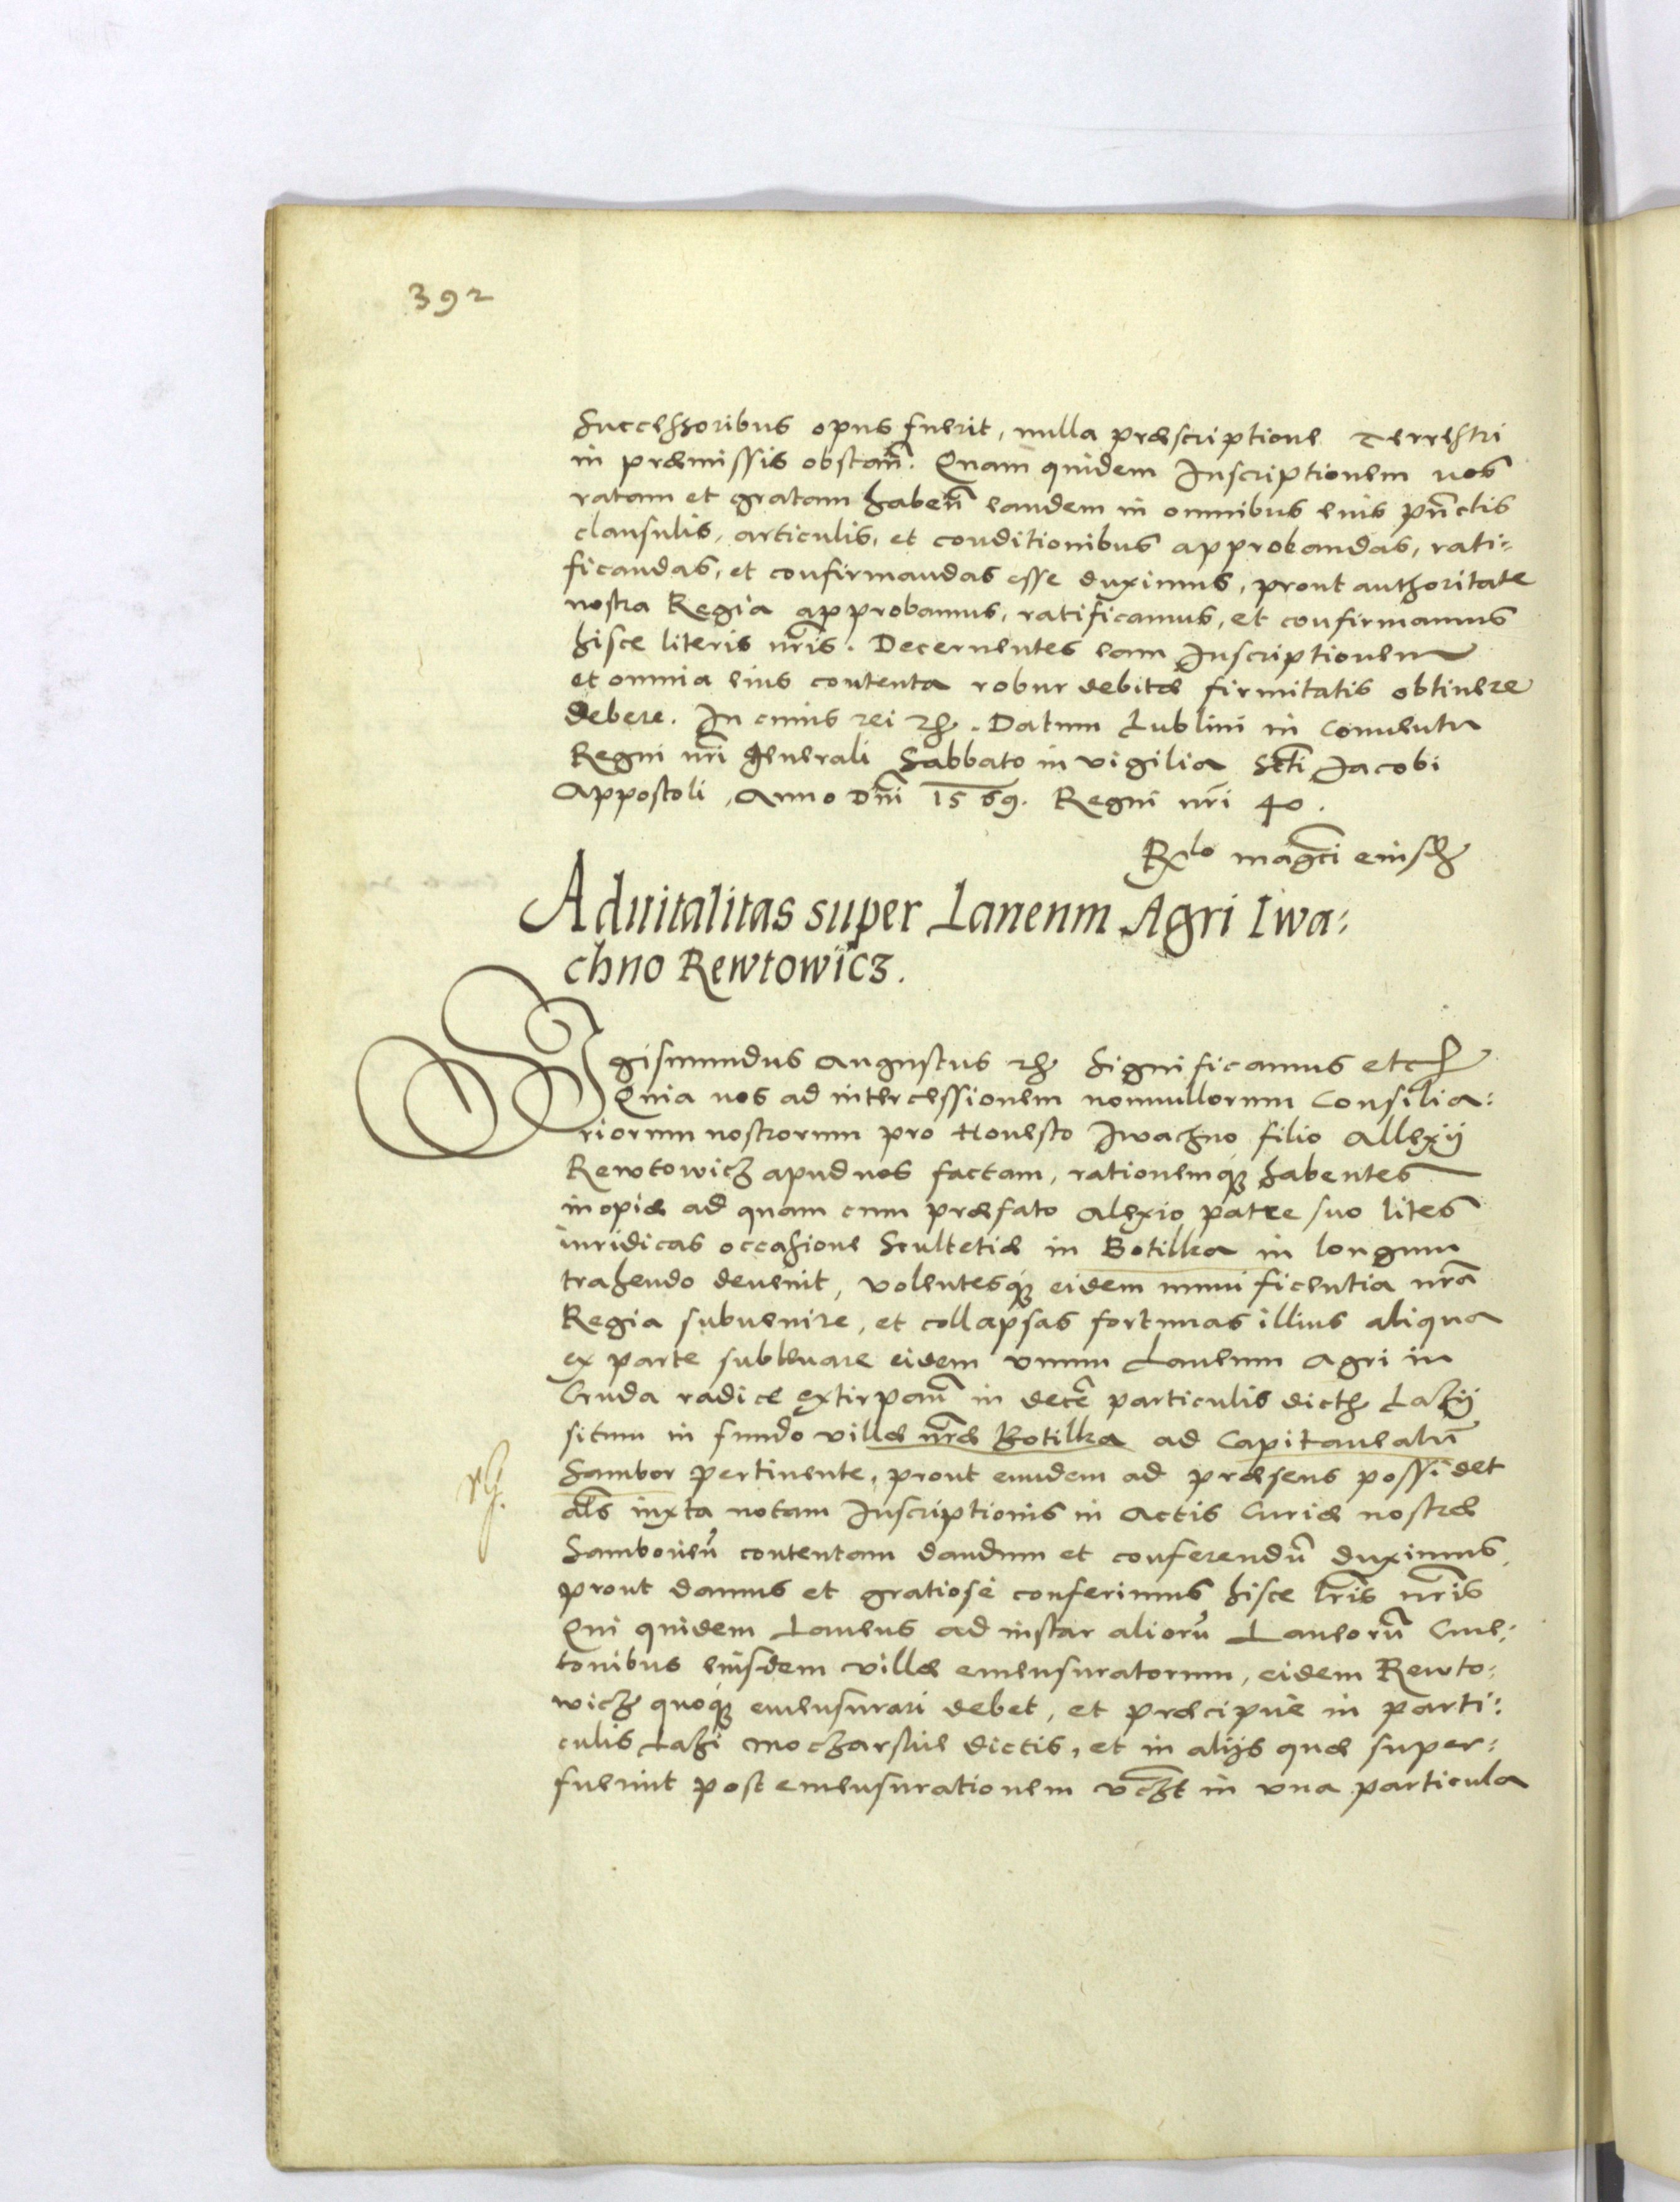 392
Successoribus opus fuerit, nulla præscriptione Terrestri
in præmissis obstañ. Quam quidem Inscriptionem nos
ratam et gratam habeñ eandem in omnibus eius pũnctis
clausulis, articulis, et conditionibus approbandas, rati=
ficandas, et confirmandas esse duximus, prout authoritate
nostra Regia approbamus, ratificamus, et confirmamus
hisce literis nr̃is. Decernentes eam Inscriptionem
et omnia eius contenta robur debitæ firmitatis obtinere
debere. In cuius rei etc. Datum Lublini in Conuentu
Regni nr̃i generali Sabbato in vigilia Scti Jacobi
Appostoli, Anno Dñi 1569. Regni nr̃i 40.
Rlo magci eiusd
Aduitalitas super Laneum Agri Iwa=
chno Rewtowicz.
Sigismundus Augustus etc Significamus etc
Quia nos ad intercessionem nonnullorum Consilia=
riorum nostrorum pro Honesto Iwachno filio Allexij
Rewtowicz apud nos factam, rationemque habentes
inopiæ ad quam cum præfato Alexio patre suo lites
iuridicas occasione Scultetiæ in Botilka in longum
trahendo deuenit, volentesque eidem munificentia nr̃a
Regia subuenire, et collapsas fortunas illius aliqua
ex parte subleuare eidem vnum Laneum agri in
Cruda radice extirpatũ in decẽ particulis dicth Lazÿ
situm in fundo villæ nr̃æ Botilka ad Capitaneatũ
Sambor pertinente, prout eundem ad præsens possidet
als iuxta notam Inscriptionis in Actis Curiæ nostræ
Samborieñ contentam dandum et conferendũ duximus,
prout damus et gratiosè conferimus hisce lr̃is nr̃is
Qui quidem Laneus ad instar aliorũ Laneorũ Cme=
tonibus eiusdem villæ emensuratorum, eidem Rewto=
wicz quoque emensurari debet, et præcipuè in parti=
culis Lazi Moczarskie dictis, et in alijs quæ super=
fuerint post emensurationem vczt in vna particula